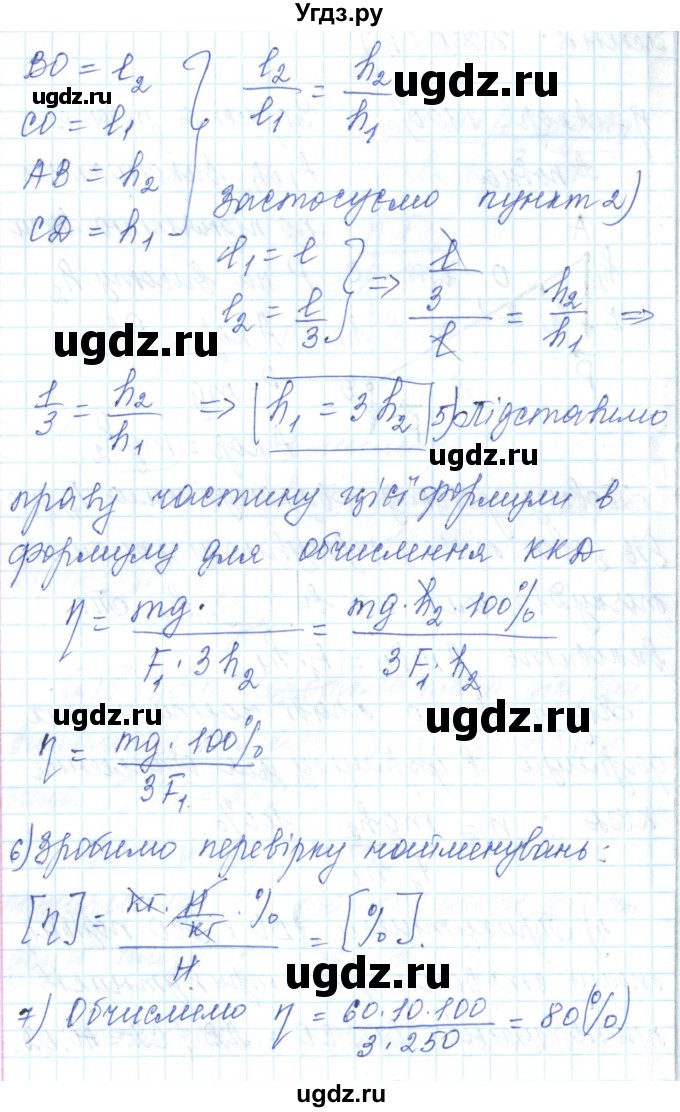 Угдз.ру
BO = l₂
ugdz.ru
CO = l₁
AB = h₂
CД = h₁
l₂/l₁ = h₂/h₁
ugdz.ru
Застосуємо пункт 2)
l₁ = l
l₂ = l/3
ugdz.ru
=> (l/3)/l = h₂/h₁ =>
ugdz.ru
1/3 = h₂/h₁ => h₁ = 3h₂ 5) Підставимо
ugdz.ru
праву частину цієї формули в
формулу для обчислення ККД
ugdz.ru
η = mg·/F₁·3h₂ = mg·h₂·100%/3F₁·h₂
ugdz.ru
ugdz.ru
η = mg·100%/3F₁
6) Зробимо перевірку найменувань:
ugdz.ru
[η] = кг·Н/кг·%/Н = [%].
ugdz.ru
7) Обчислимо η = 60·10·100/3·250 = 80(%)
ugdz.ru
ugdz.ru